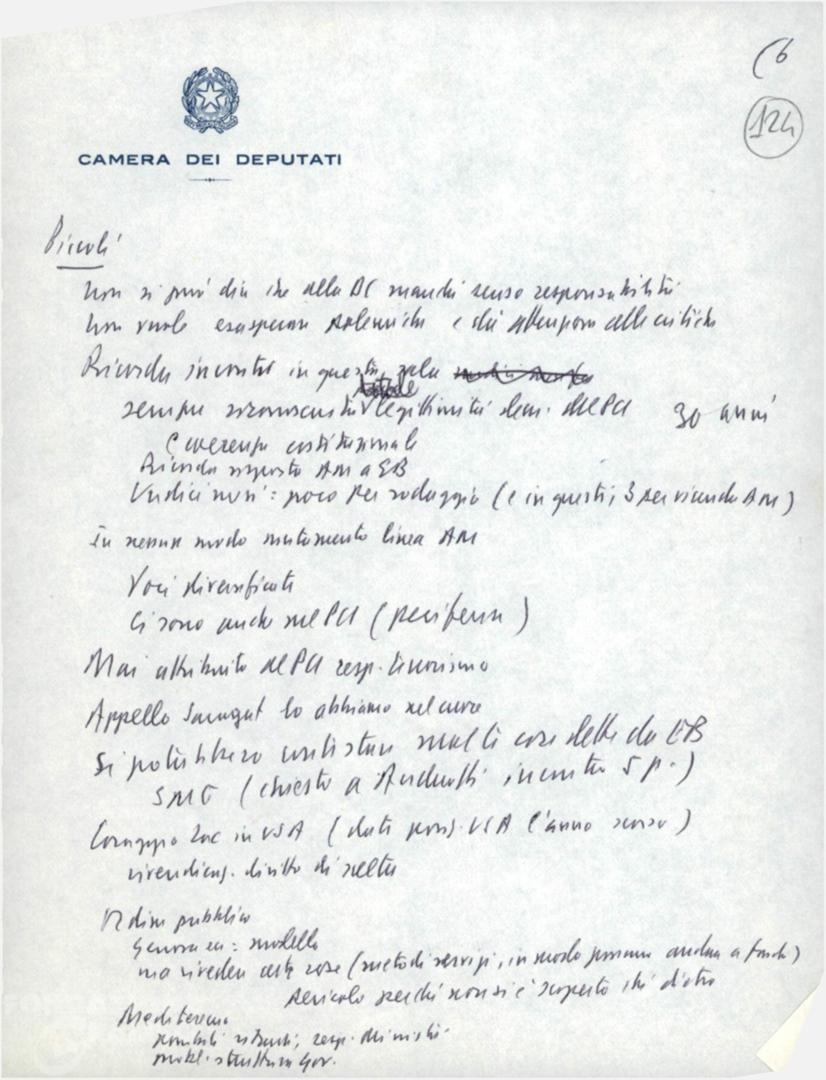 (6
124
CAMERA DEI DEPUTATI
Piccoli
Non si può dire che alla DC manchi senso responsabilità
Non vuole esasperare polemiche e dà attenzione alle critiche
Ricorda incontri in questa sala
sempre riconosciuta legittimità dem. del PCI 30 anni
Coerenza costituzionale
Ricorda risposta AM a EB
Undici mesi: poco per rodaggio (e in questi, 3 per vicenda AM)
In nessun modo mutamento linea AM
Voci diversificate
Ci sono anche nel PCI (periferia)
Mai attribuito al PCI resp. terrorismo
Appello Saragat lo abbiamo nel cuore
Si potrebbero contestare molte cose dette da EB
SME (chiesto a Andreotti incontro 5 p.)
Coraggio Zac in USA (date posiz. USA l'anno scorso)
rivendicaz. diritto di scelta
Ordine pubblico
Genova : modello
ma rivedere certe cose (metodi servizi, in modo possano andare a fondo)
Pericolo perché non si è scoperto chi c'è dietro
Mediterraneo
possibili ritardi, resp. ministri
probl. struttura Gov.